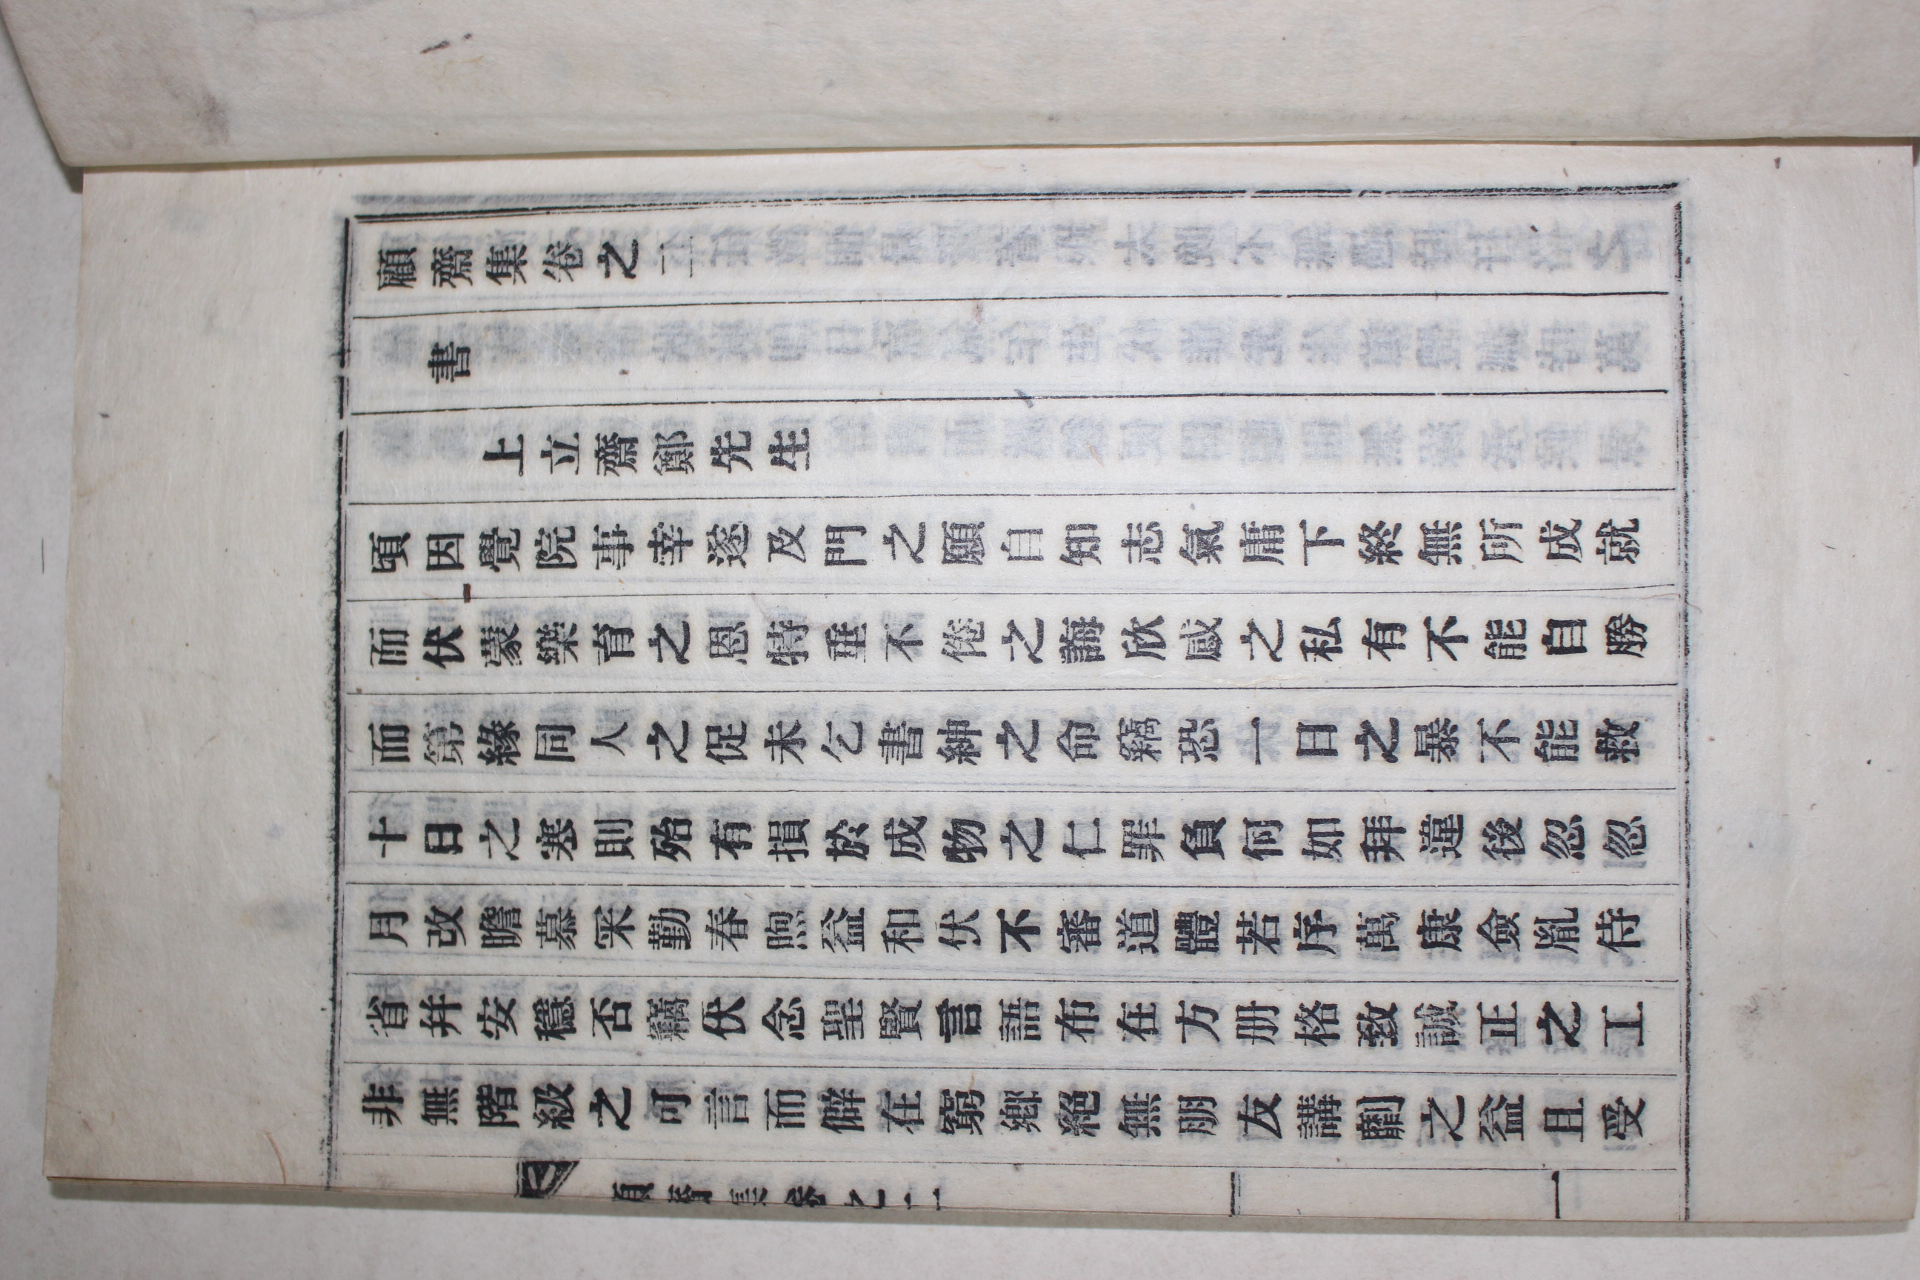 顧齋集卷之二
書
上立齋鄭先生
頃因覺院事幸遂及門之願自知志氣庸下終無所成就
而伏蒙樂育之恩特垂不倦之誨欣感之私有不能自勝
而第緣同人之促未乞書紳之命竊恐一日之暴不能救
十日之寒則殆有損於成物之仁罪負何如拜違後忽忽
月改瞻慕冞勤春煦益和伏不審道體若序萬康僉胤侍
省幷安穩否竊伏念聖賢言語布在方册格致誠正之工
非無階級之可言而僻在窮鄕絕無朋友講劘之益且受
顧齋集卷之二
一